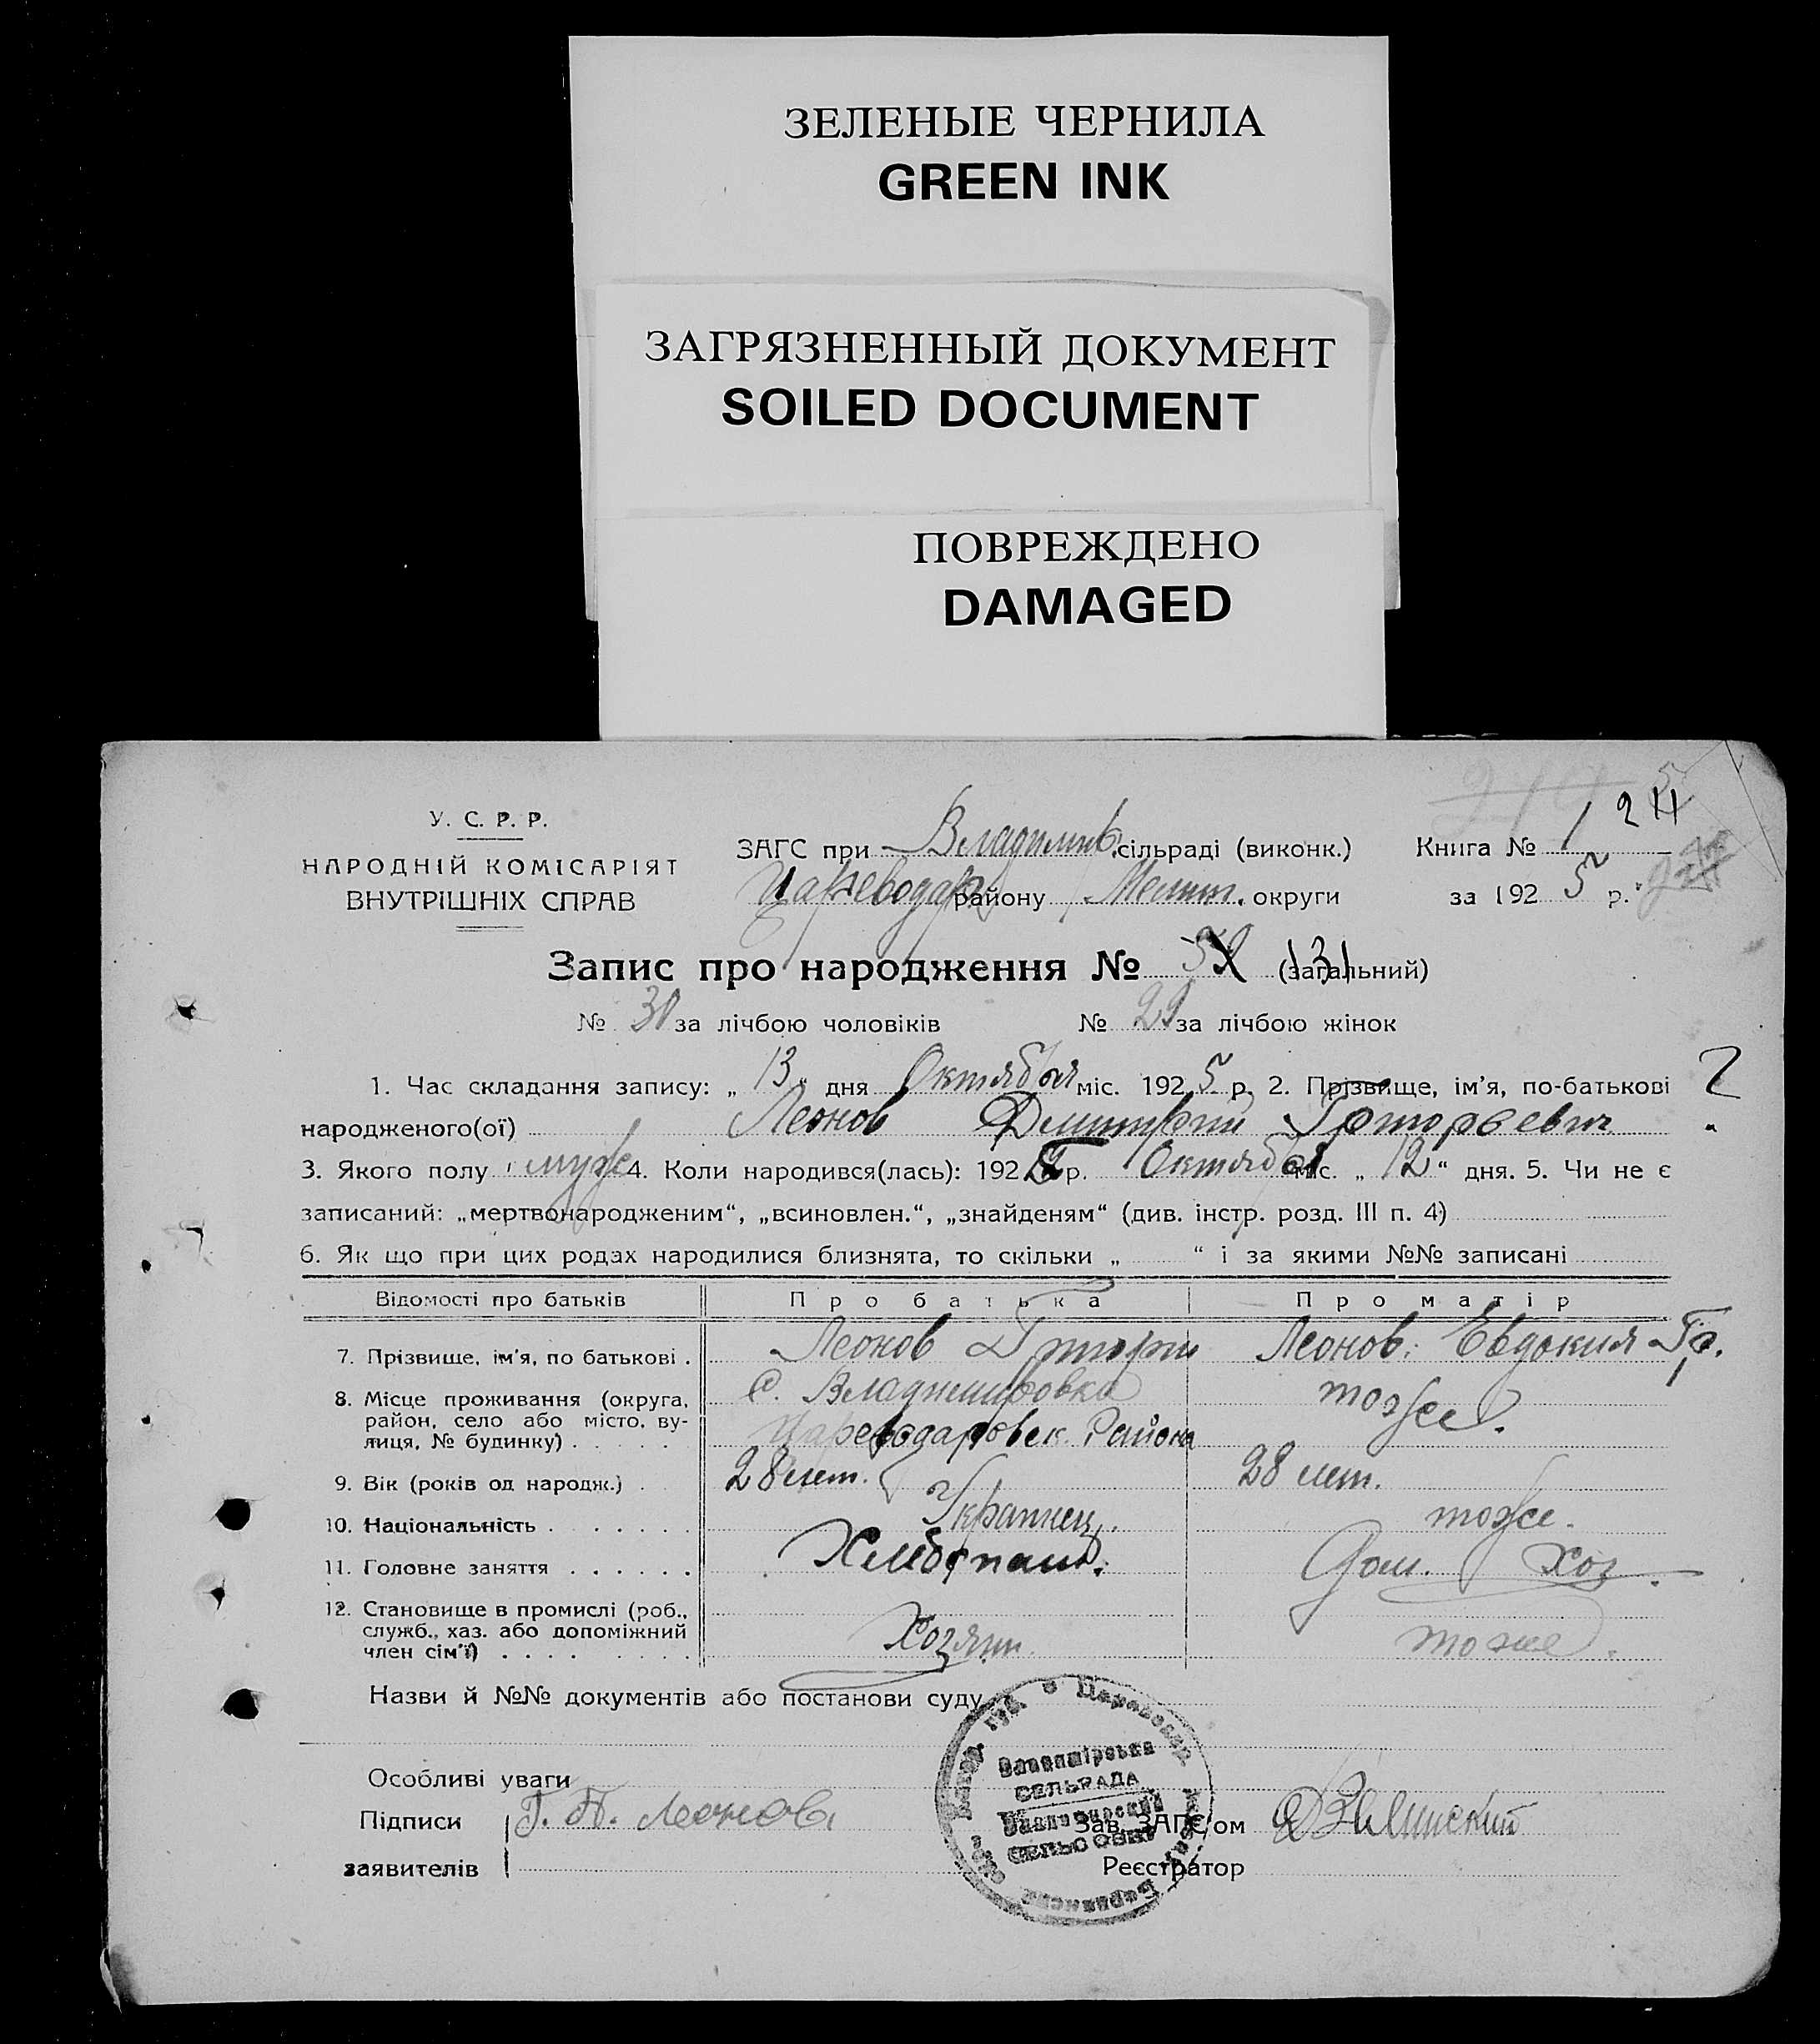 ЗЕЛЕНЫЕ ЧЕРНИЛА
GREEN INK
ЗАГРЯЗНЕННЫЙ ДОКУМЕНТ
SOILED DOCUMENT
ПОВРЕЖДЕНО
DAMAGED
У. С. Р. Р.
НАРОДНІЙ КОМІСАРІЯТ
ВНУТРІШНІХ СПРАВ
ЗАГС при Владимир. сільраді (виконк.) Книга № 1 24
Цареводар району Мелит. округи за 1925 р.
Запис про народження № 59 (загальний) 131
№ 30 за лічбою чоловіків № 29 за лічбою жінок
1. Час складання запису: „13“ дня Октября міс. 1925 р. 2. Прізвище, ім’я, по-батькові
народженого(ої) Леонов Дмитрий Григорьевич
3. Якого полу муж 4. Коли народився(лась): 1925 р. Октября міс. „12“ дня. 5. Чи не є
записаний: „мертвонародженим“, „всиновлен.“, „знайденям“ (див. інстр. розд. III п. 4)
6. Як що при цих родах народилися близнята, то скільки „ “ і за якими №№ записані
Відомості про батьків Про батька Про матір
7. Прізвище, ім’я, по батькові . Леонов Григори Леонов. Евдокия Гр.
8. Місце проживання (округа, район, село або місто, вулиця, № будинку) . . . . . с. Владимировка тоже.
Цареводаровск. Района
9. Вік (років од народж.) . 28 лет. 28 лет.
10. Національність . . . . . . . Украинец. тоже.
11. Головне заняття . . . . . . Хлебопаш. Дом. Хоз.
12. Становище в промислі (роб., служб., хаз. або допоміжний член сім’ї) . . . . . . . . Хозяин. тоже.
Назви й №№ документів або постанови суду
Особливі уваги
Підписи Г. П. Леонов Зав. ЗАГС’ом
заявителів Реєстратор
СЕЛЬРАДА
СЕЛЬСОВЕТ